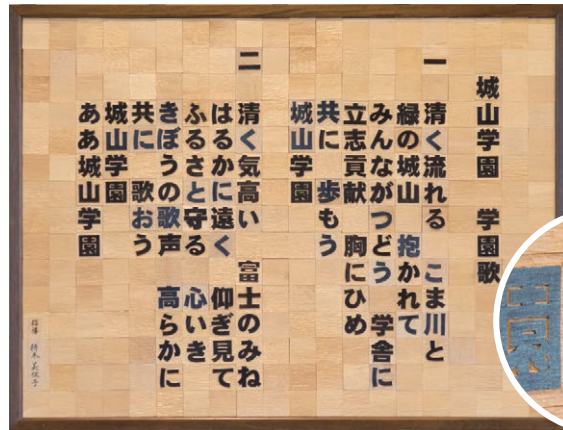 城山学園　学園歌
一　清く流れる　こま川と
緑の城山　抱かれて
みんながつどう　学舎に
立志貢献　胸にひめ
共に　歩もう
城山学園
二　清く気高い　富士のみね
はるかに遠く　仰ぎ見て
ふるさと守る　心いき
きぼうの歌声　高らかに
共に　歌おう
城山学園
ああ城山学園